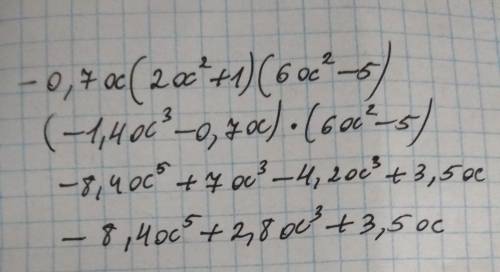 -0,7x(2x²+1)(6x²-5)
(-1,4x³-0,7x)·(6x²-5)
-8,4x⁵+7x³-4,2x³+3,5x
-8,4x⁵+2,8x³+3,5x